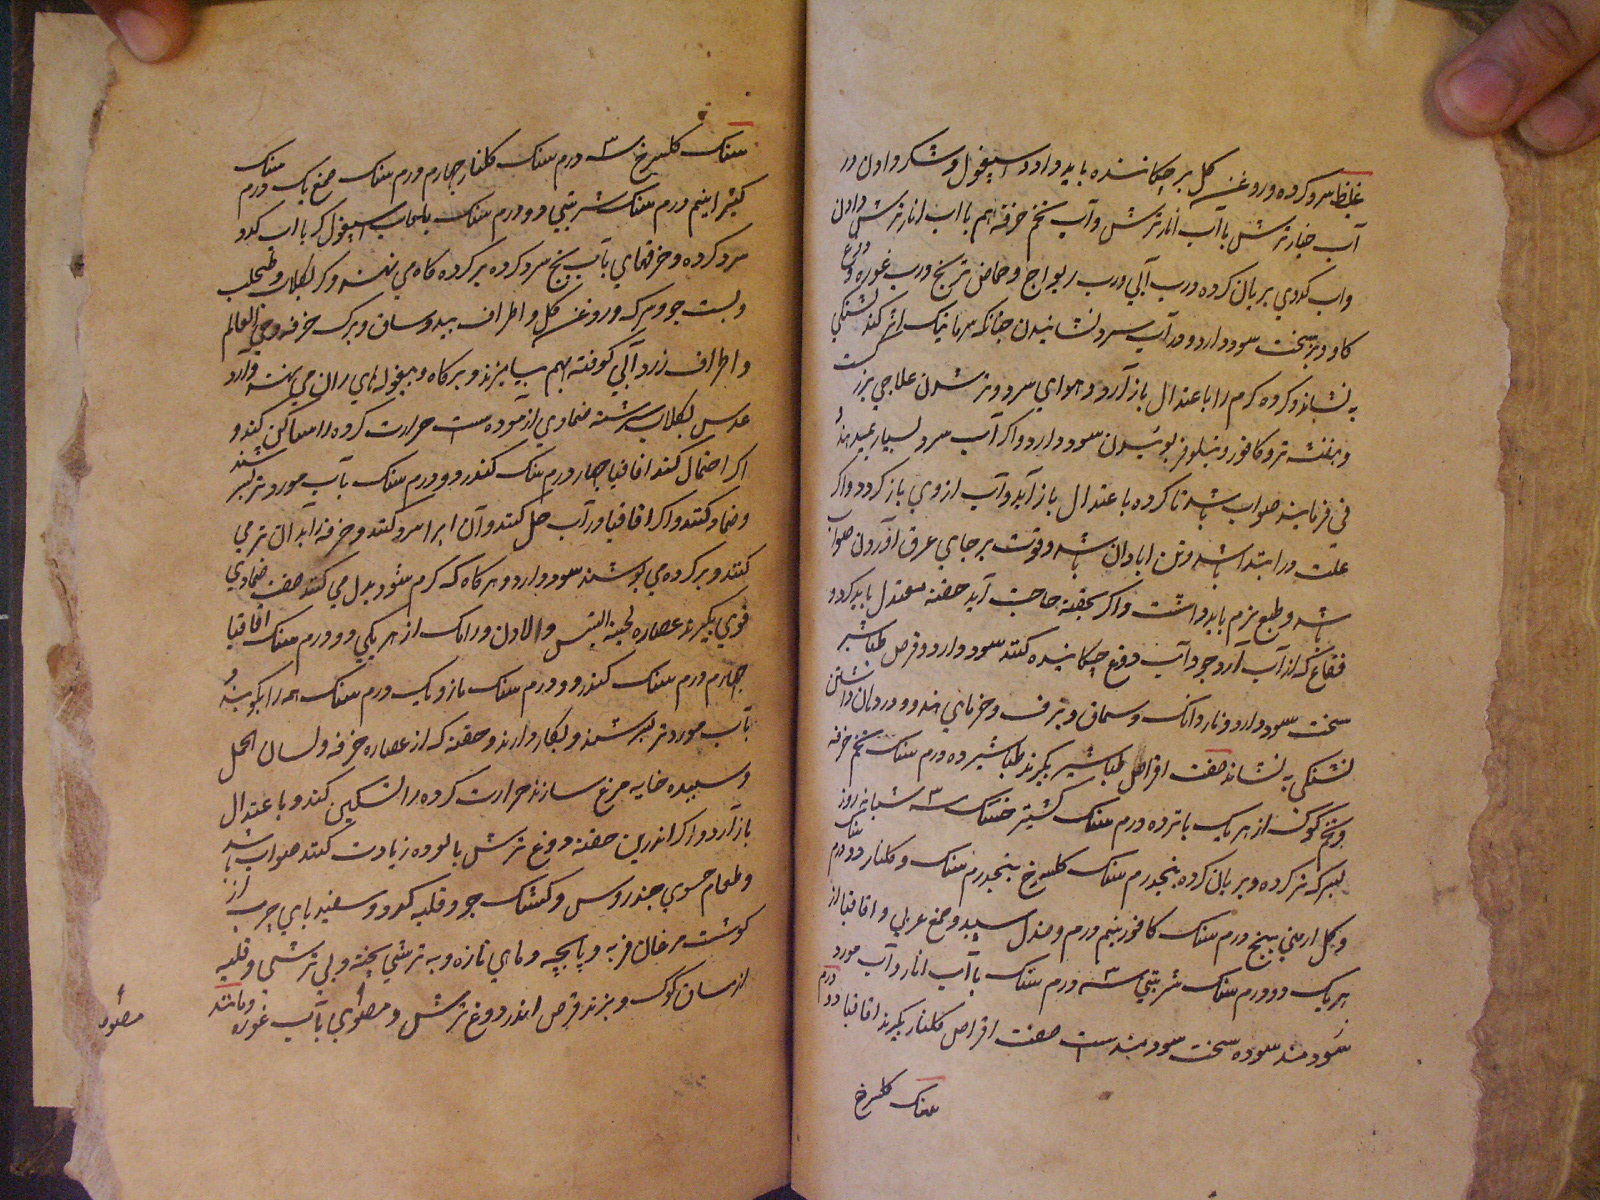 غلیظ سرد کرده و روغن گل بر چکانیده باید داد و اسپغول و شکر دادن در
آب خیار ترش با آب انار ترش و آب تخم خرفه هم با آب انار ترش دادن
و آب کدوی بریان کرده و رب آبی و رب ریواج و حماض ترنج و رب غوره و دوغ
کاو و بز سخت سود دارد و در آب سرد نشانیدن چنانکه سرما نیک اثر کند تشنگی
بنشاند و کرده گرم را باعتدال باز آرد و هوای سرد و تر شدن علاجی بزرگست
و بنفشه تر و کافور و نیلوفر بوئیدن سود دارد و اگر آب سرد بسیار بمید هند
قی فرمایند صواب باشد تا کرده باعتدال باز آید و آب از وی باز گردد و اگر
علت در ابتدا باشد و تن ابادان باشد و قوت بر جای عرق آوردن صواب
باشد و طبع نرم باید داشت و اگر بحقنه حاجت آید حقنه معتدل باید کرد و
فقاع که از آب آرد جو و آب دوغ چکانیده کنند سود دارد و قرص طباشیر
سخت سود دارد و ناردانک و سماق و برف و خرمای هندو در دهان داشتن
تشنگی بنشاند صفت اقراص طباشیر بگیرند طباشیر ده درم سنک تخم خرفه
و تخم کوک از هر یک پانزده درم سنک کشنیز خشک سه شبانه روز
بسرکه تر کرده و بریان کرده پنجدرم سنک گلسرخ پنجدرم سنک و گلنار دو درم سنک
و گل ارمنی پنج درم سنک کافور نیم درم و صندل سپید و صمغ عربی و اقاقیا از
هر یک دو درم سنک شربتی سه درم سنک با آب انار و آب مورد
سود مند بوده سخت سود مندست صفت اقراص گلنار بگیرند اقاقیا دو درم
سنک گلسرخ
سنک گلسرخ سه درم سنک گلنار چهارم درم سنک صمغ یک درم سنک
کتیرا نیم درم سنک شربتی دو درم سنک بلعاب اسپغول کر با آب کدو
سرد کرده و خرقهای بآب یخ سرد کرده بر کرده کاه می نهند و کر بگلاب و طحلب
و پست جو و سرکه و روغن گل و اطراف بید و ساق و برک خرفه و حی العالم
و اطراف زرد آبی کوفته بهم بیامیزند و بر کاه و بیغوله های ران می نهند و آرد
عدس بگلاب سرشته ضمادی آزموده است حرارت کرده را ساکن کند و
اگر احتمال کند اقاقیا چهار درم سنک کندر دو درم سنک بآب مورد تر بسرشند
و ضماد کنند و اگر اقاقیا در آب حل کنند و آن ابرا سرد کنند و خرفه ابدان تر می
کنند و بر کرده می پوشند سود دارد و هر کاه که گرم شود بدل می کنند صفت ضمادی
قوی بگیرند عصاره لحیة التیس و الادن و رامک از هر یکی دو درم سنک اقاقیا
چهارم درم سنک کندر دو درم سنک مازو یک درم سنک همه را بکوبند
بآب مورد تر بسرشند و بکار دارند و حقنه که از عصاره خرفه و لسان الحمل
و سپیده خایه مرغ سازند حرارت کرده را تسکین کند و باعتدال
باز آرد و اگر اندرین حقنه دوغ ترش پالوده زیادت کنند صواب باشد
و طعام حسوی جندروس و کشک جو و قلیه کدو و سفید بای چرب از
گوشت مرغان فربه و پاچه و ماهی تازه و به ترشی پخته و بی ترشی و قلیه
از میان کوک و بزند قرص اندر دوغ ترش و مصوی بآب غوره و مانند
مصوص